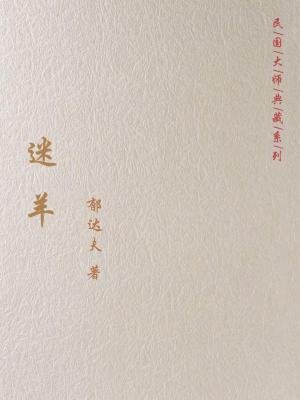 民国大师典藏系列
迷羊
郁达夫 著